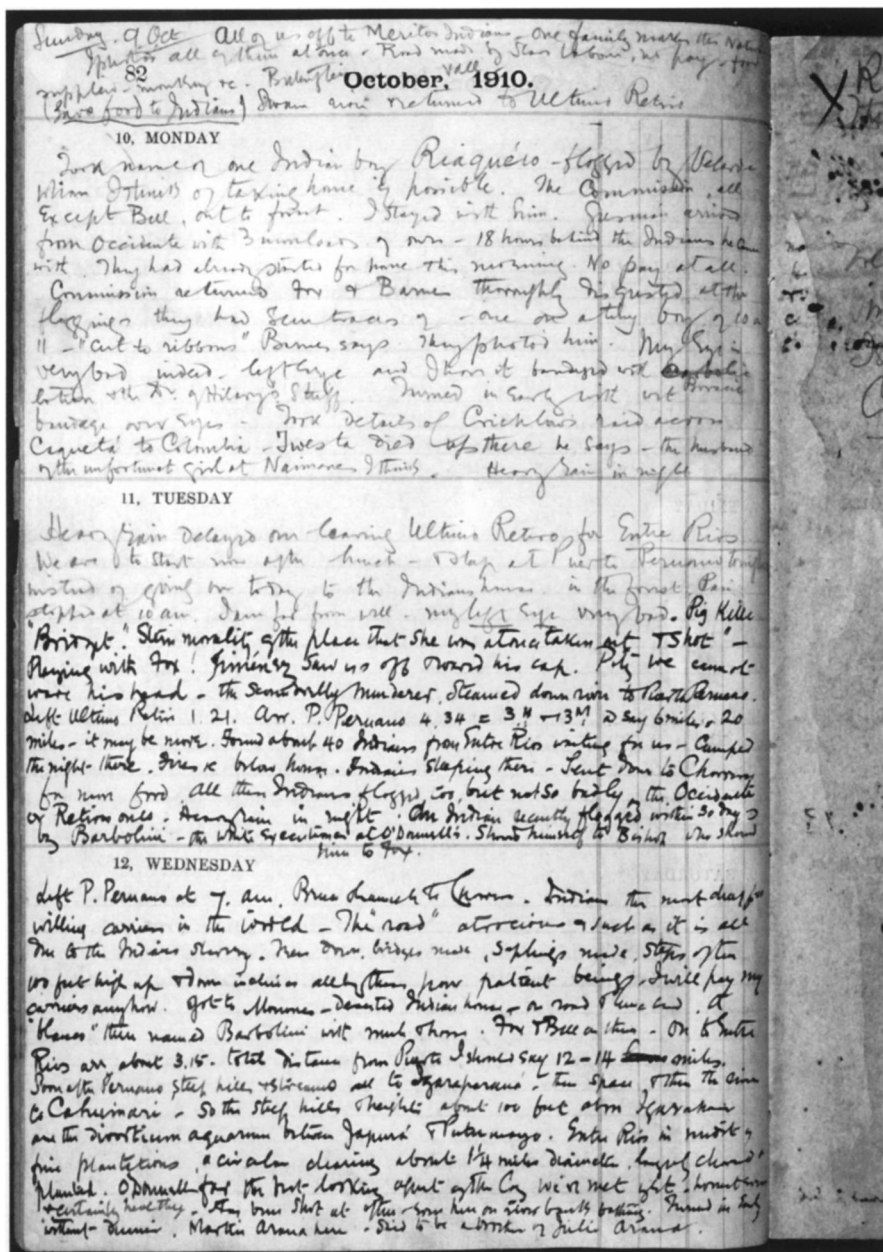 Sunday. 9 Oct. All of us off to Meritos Indians - One family makes the Nation
I photo'd all of them at once - Road made by Slave labour, no pay - food
supplied - monkey &c.
82
October, 1910.
(Gave food to Indians) Swam river & returned to Ultimo Retiro
10, MONDAY
Took name of one Indian boy Riaquéro - flogged by Velarde
whom I think of taking home if possible. The Commission, all
except Bell, out to forest. I stayed with him. Gusman arrives
from Occidente with 3 more loads of ours - 18 hours behind the Indians he came
with. They had already started for home this morning. No pay at all.
Commission returned Fox & Barnes thoroughly disgusted at the
floggings they had seen traces of - one on a tiny boy of 10 or
11 - "cut to ribbons" Barnes says. They photo'd him. My Eye is
very bad indeed - left Eye and I have it bandaged with
lotion Boracic. Turned in Early with wet
bandage over Eyes - Took details of Crichlow's raid across
Caquetá to Colombia - died up there he says - the husband
of the unfortunate girl at Naimenes I think. Heavy Rain in night
11, TUESDAY
Heavy Rain delayed our leaving Ultimo Retiro for Entre Rios
We are to start now after lunch - & sleep at Puerto Peruano tonight
instead of going on today to the Indians house in the forest. Rain
stopped at 10 am. I am far from well. My left Eye very bad. Pig Killed
"Bridget". Stern morality of the place that She was at once taken out & Shot -
Playing with Fox! Jiménez saw us off & waved his cap. Pity we cannot
wave his head - the scoundrelly Murderer. Steamed down river to Puerto Peruano.
Left Ultimo Retiro 1.21. Arr. P. Peruano 4.34 = 3 H & 13 M @ say 6 miles = 20
miles - it may be more. Found about 40 Indians from Entre Rios waiting for us - Camped
the night there. Fires &c below house. Indians sleeping there - Sent down to
for more food. All these Indians flogged, too, but not so badly as the Occidente
or Retiro ones. Heavy rain in night. One Indian recently flogged within 30 days
by Barbolini - the white executioner at O'Donnell's. Showed himself to Bishop who showed
him to Fox.
12, WEDNESDAY
Left P. Peruano at 7. am. Indians the most
willing carriers in the World - The "road" atrocious & such as it is all
due to the Indians slavery. Trees down, bridges made, Saplings made, Steps often
100 feet high up & down inclines all by these poor patient beings. I will pay my
carriers anyhow. Got to Muinanes - Deserted Indian house - on road & lunched. A
"blanco" there named Barbolini with mule & horse. Fox & Bell on them - On to Entre
Rios arr. about 3.15. total distance from Puerto I should say 12 - 14 miles.
Soon after Peruano steep hills & streams all to Igaraparaná - then space, & then the
to Cahuinari - So the steep hills & heights about 100 feet above Igaraparaná
are the divortium aquarum between Japurá & Putumayo. Entre Rios in midst of
fine plantations, a circular clearing about 1¼ miles Diameter, largely cleared &
planted. O'Donnell far the best looking agent of the Coy we've met yet - honest
& certainly healthy. Has been Shot at often - once here on river bank bathing. Turned in Early
without dinner. Martin Arana here - Said to be a brother of Julio Arana.